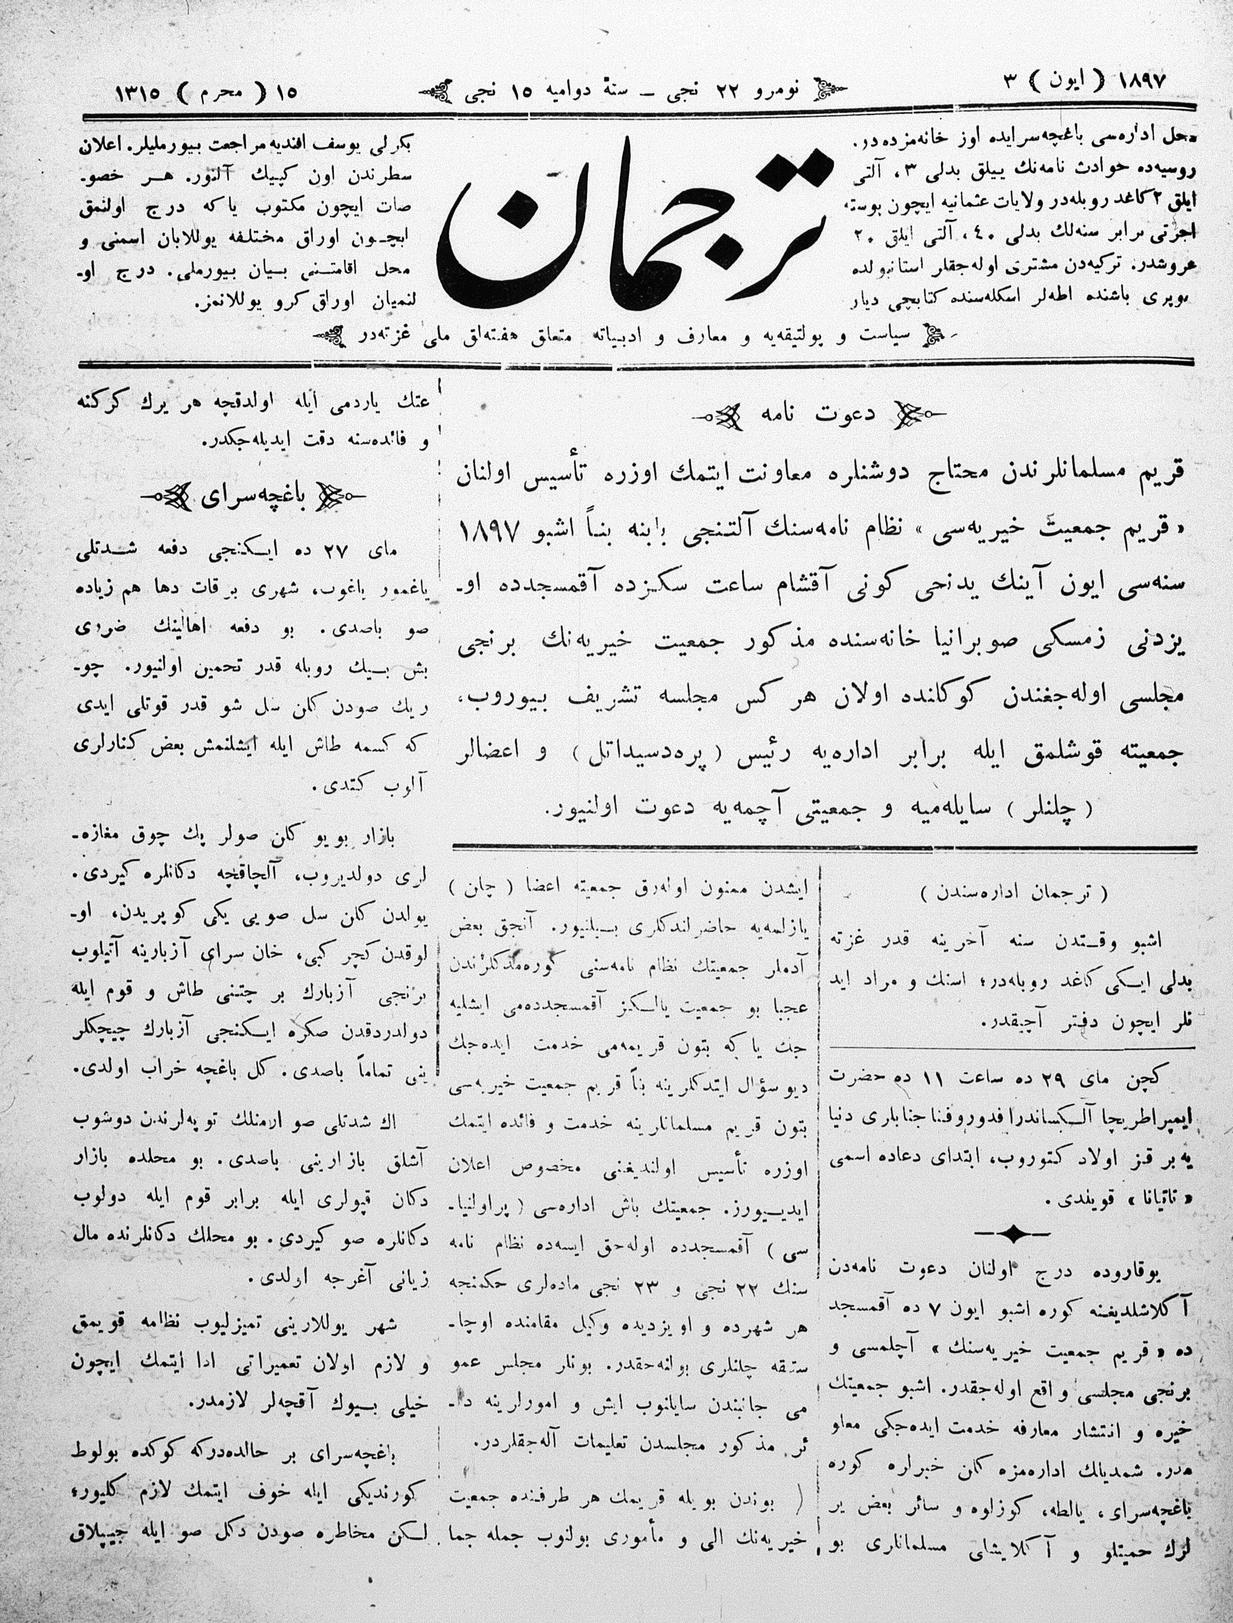 ١٨٩٧ ( ايون ) ٣
نومرو ٢٢ نجى ـ سنهٔ دواميه ١٥ نجى
١٥ ( محرم ) ١٣١٥
محل اداره‌سى باغچه‌سرايده اوز خانه‌مزده‌در.
روسيه‌ده حوادث نامه‌نك ييلق بدلى ٣، آلتى
ايلق ٢ كاغد روبله‌در ولايات عثمانيه ايچون بوسته
اجرتى برابر سنه‌لك بدلى ٤٠، آلتى ايلق ٢٠
غروشدر. تركيه‌دن مشترى اوله‌جقلر استانبولده
كوپرى باشنده اطه‌لر اسكله‌سنده كتابچى ديار
ترجمان
بكرلى يوسف افنديه مراجعت بيورمليلر. اعلان
سطرندن اون كپيك آلنور. هر خصو‍ـ
صات ايچون مكتوب ياكه درج اولنمق
ايچون اوراق مختلفه يوللايان اسمنى و
محل اقامتنى بيان بيورملى. درج او‍ـ
لنميان اوراق كرو يوللانمز.
سياست و پولتيقه‌يه و معارف و ادبياته متعلق هفته‌لق ملى غزته‌در
دعوت نامه
قريم مسلمانلرندن محتاج دوشنلره معاونت ايتمك اوزره تأسيس اولنان
« قريم جمعيت خيريه‌سى » نظام نامه‌سنك آلتنجى بابنه بنأ اشبو ١٨٩٧
سنه‌سى ايون آينك يدنجى كونى آقشام ساعت سكزده آقمسجدده او‍ـ
يزدنى زمسكى صوبرانيا خانه‌سنده مذكور جمعيت خيريه‌نك برنجى
مجلسى اوله‌جغندن كوكلنده اولان هر كس مجلسه تشريف بيوروب،
جمعيته قوشلمق ايله برابر اداره‌يه رئيس ( پره‌دسيداتل ) و اعضالر
( چلنلر ) سايله‌ميه و جمعيتى آچمه‌يه دعوت اولنيور.
( ترجمان اداره‌سندن )
اشبو وقتدن سنه آخرينه قدر غزته
بدلى ايكى كاغد روبله‌در؛ استك و مراد ايد
نلر ايچون دفتر آچيقدر.
كچن ماى ٢٩ ده ساعت ١١ ده حضرت
ايمپراطريچا آلكساندرا فدوروفنا جنابلرى دنيا
يه بر قز اولاد كتوروب، ابتداى دعاده اسمى
« تاتيانا » قويلدى.
يوقاروده درج اولنان دعوت نامه‌دن
آكلاشلديغنه كوره اشبو ايون ٧ ده آقمسجد
ده « قريم جمعيت خيريه‌سنك » آچلمسى و
برنجى مجلسى واقع اوله‌جقدر. اشبو جمعيتك
خيره و انتشار معارفه خدمت ايده‌جكى معلو
مدر. شمديلك اداره‌مزه كلن خبرلره كوره
باغچه‌سراى، يالطه، كوزلوه و سائر بعض ير
لرك حميتلو و آكلايشلى مسلمانلرى بو
ايشدن ممنون اوله‌رق جمعيته اعضا ( چلن )
يازلمه‌يه حاضرلندكلرى بيلنيور. آنجق بعض
آدملر جمعيتك نظام نامه‌سنى كوره‌مدكلرندن
عجبا بو جمعيت يالكز آقمسجدده‌مى ايشليه
جك ياكه بتون قريمه‌مى خدمت ايده‌جك
ديو سؤال ايتدكلرينه بنأ قريم جمعيت خيريه‌سى
بتون قريم مسلمانلرينه خدمت و فائده ايتمك
اوزره تأسيس اولنديغنى مخصوص اعلان
ايديورز. جمعيتك باش اداره‌سى ( پراولنيا‍ـ
سى ) آقمسجدده اوله‌جق ايسه‌ده نظام نامه
سنك ٢٢ نجى و ٢٣ نجى ماده‌لرى حكمنجه
هر شهرده و اويزديده وكيل مقامنده اوچا‍ـ
ستقه چلنلرى بولنه‌جقدر. بونلر مجلس عمو
مى جانبندن سايلنوب ايش و امورلرينه دا‍ـ
ئر مذكور مجلسدن تعليمات آله‌جقلردر.
بوندن بويله قريمك هر طرفنده جمعيت
خيريه‌نك الى و مأمورى بولنوب جمله جما
عتك ياردمى ايله اولدقچه هر يرك كركنه
و فائده‌سنه دقت ايديله‌جكدر.
باغچه‌سراى
ماى ٢٧ ده ايكنجى دفعه شدتلى
ياغمور ياغوب، شهرى بر قات دها هم زياده
صو باصدى. بو دفعه اهالينك ضررى
بش بيك روبله قدر تخمين اولنيور. چو‍ـ
ريك صودن كلن سل شو قدر قوتلى ايدى
كه كسمه طاش ايله ايشلنمش بعض كنارلرى
آلوب كتدى.
بازار بويو كلن صولر پك چوق مغازه‍ـ
لرى دولديروب، آلچاقچه دكانلره كيردى.
يولدن كلن سل صويى يكى كوپريدن، او‍ـ
لوقدن كچر كبى، خان سراى آزبارينه آتيلوب
برنجى آزبارك بر چتنى طاش و قوم ايله
دولدردقدن صكره ايكنجى آزبارك چيچكلر
ينى تماماً باصدى. كل باغچه خراب اولدى.
اك شدتلى صو ارمنلك توپه‌لرندن دوشوب
آشلق بازارينى باصدى. بو محلده بازار
دكان قپولرى ايله برابر قوم ايله دولوب
دكانلره صو كيردى. بو محلك دكانلرنده مال
زيانى آغرجه اولدى.
شهر يوللارينى تميزليوب نظامه قويمق
و لازم اولان تعميراتى ادا ايتمك ايچون
خيلى بيوك آقچه‌لر لازمدر.
باغچه‌سراى بر حالده‌دركه كوكده بولوط
كورنديكى ايله خوف ايتمك لازم كليور؛
لكن مخاطره صودن دكل صو ايله جيپلاق